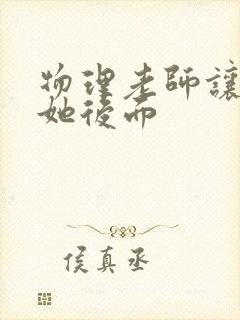 物理老師讓
她後而
侯真丞